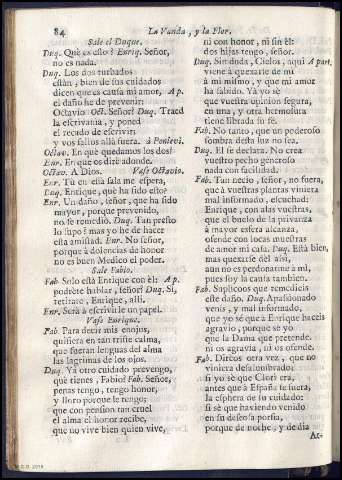 84 La Vanda, y la Flor.
Sale el Duque.
Duq. Què es esto? Enriq. Señor,
no es nada.
Duq. Los dos turbados
estàn, bien de sus cuidados
dicen que es causa mi amor, Ap.
el daño he de prevenir:
Octavio. Oct. Señor? Duq. Traed
la escrivania, y poned
el recado de escrivir;
y vos salios allà fuera. à Ponlevi.
Octav. En què quedamos los dos?
Enr. En que os dirè adonde.
Octav. A Dios. Vase Octavio.
Enr. Tu en essa sala me espera,
Duq. Enrique, què ha sido esto?
Enr. Un daño, señor, que ha sido
mayor, porque prevenido,
no se remediò. Duq. Tan presto
lo supo! mas yo he de hacer
esta amistad. Enr. No señor,
porque à dolencias de honor
no es buen Medico el poder.
Sale Fabio.
Fab. Solo està Enrique con èl: Ap.
podrète hablar, señor? Duq. Si,
retirate, Enrique, alli.
Enr. Serà à escrivirle un papel.
Vase Enrique.
Fab. Para decir mis enojos,
quisiera en tan triste calma,
que fueran lenguas del alma
las lagrimas de los ojos.
Duq. Ya otro cuidado prevengo,
què tienes, Fabio? Fab. Señor,
penas tengo, tengo honor,
y lloro porque le tengo;
que con pension tan cruel
el alma el honor recibe,
que no vive bien quien vive,
ni con honor, ni sin èl:
dos hijas tengo, señor.
Duq. Sin duda, Cielos, aqui A part.
viene à quexarse de mi
à mi mismo, y que mi amor
ha sabido. Ya yo sè
que vuestra opinion segura,
en una, y otra hermosura
tiene librada su fè.
Fab. No tanto, que un poderoso
sombra desta luz no sea.
Duq. El se declara. No crea
vuestro pecho generoso
nada con facilidad.
Fab. Tan necio, señor, no fuera,
que à vuestras plantas viniera
mal informado, escuchad:
Enrique, con alas vuestras,
que el buelo de la privanza
à mayor esfera alcanza,
ofende con locas muestras
de amor mi casa. Duq. Està bien,
mas quexarse del assi,
aun no es perdonarme à mi,
pues soy la causa tambien.
Fab. Suplicoos que remedieis
este daño. Duq. Apasionado
venis, y mal informado,
que yo sè que à Enrique haceis
agravio, porque sè yo
que la Dama que pretende,
ni os agravia, ni os ofende.
Fab. Direos otra vez, que no
viniera desalumbrado,
si yo sè que Clori era,
antes que à España se fuera,
la esphera de su cuidado:
si sè que haviendo venido
en su deseo porfia,
porque de noche, y de dia